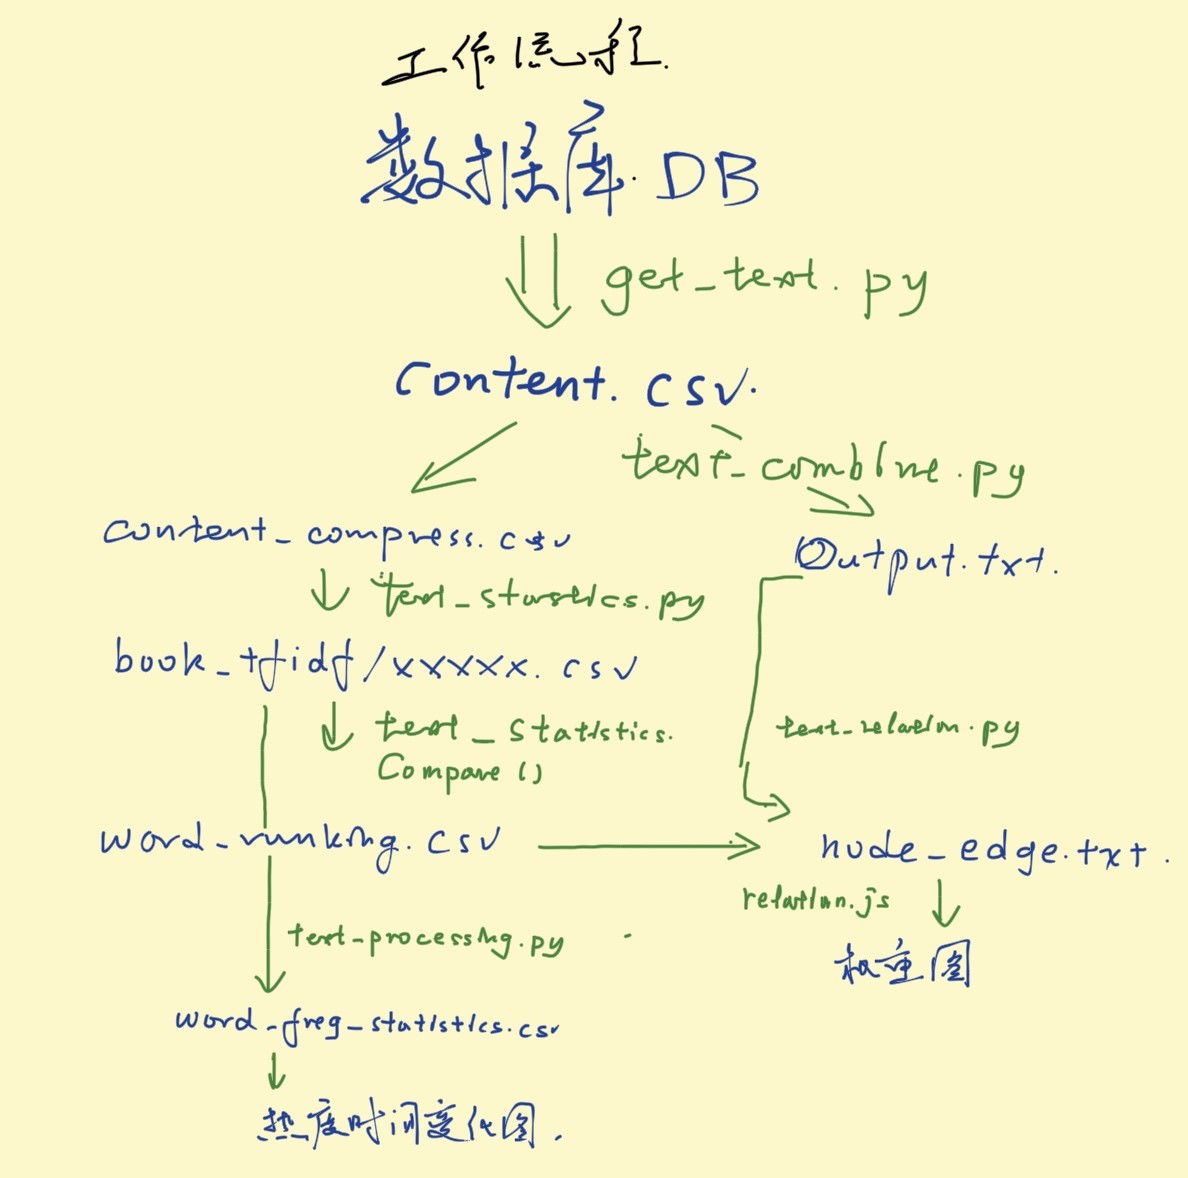 工作流程.
数据库.DB
get_text.py
Content.csv.
text_combine.py
content_compress.csv
Output.txt.
text_statistics.py
book_tfidf/xxxxx.csv
text_statistics.
Compare()
text_relation.py
word_ranking.csv
node_edge.txt.
relation.js
text-processing.py
权重图
word_freq_statistics.csv
热度时间变化图.